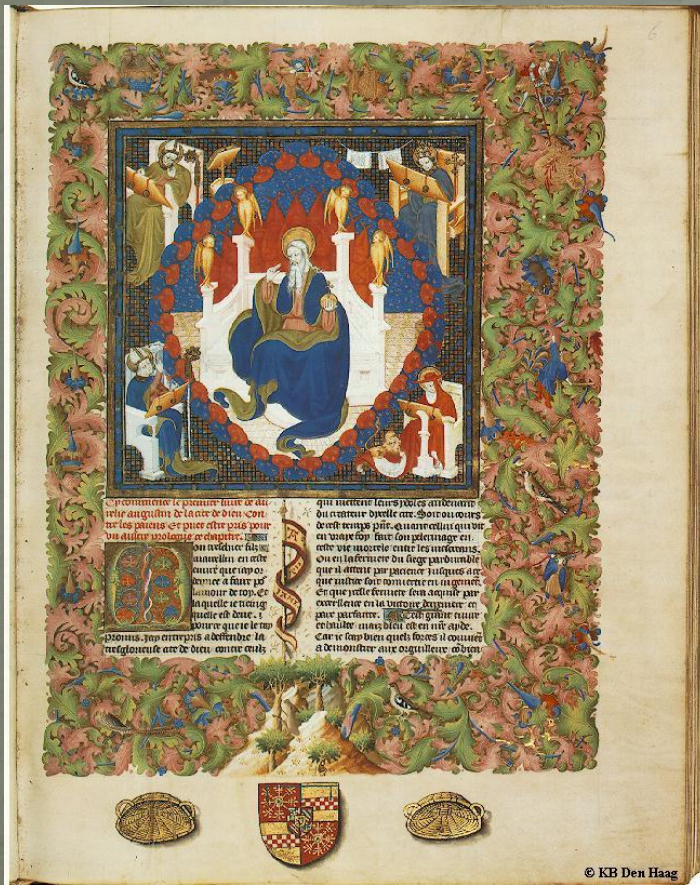 Cy commence le premier livre de au
relie augustin de la cite de dieu con
tre les paiens Et puet estre pris pour
un aultre prologue ce chapitre.
on treschier filz
marcellin en ceste
euure que iay or
a faire
lamour de toy. Et
laquelle ie tieng
quelle est deue.
pource que ie le tay
promis. iay entrepris a deffendre la
tresglorieuse cite de dieu contre ceulx
qui mettent leurs ydoles audeuant
du createur dicelle cite. Soit ou cours
de cest temps Quant cellui qui vit
en vraye foy fait son pelerinage en
ceste vie mortele entre les mescreans.
Ou en la fermete du siege pardurable
que il attent par pacience iusques a ce
que iustice soit conuertie en iugement.
Et que icelle fermete sera acquise par
excellence en la victoire derreniere et
paix parfaitte. Cest grant euure
et haulte mais dieu est en nostre ayde.
Car ie scay bien quelz forces il conuient
a demonstrer aux orguilleux
6
© KB Den Haag